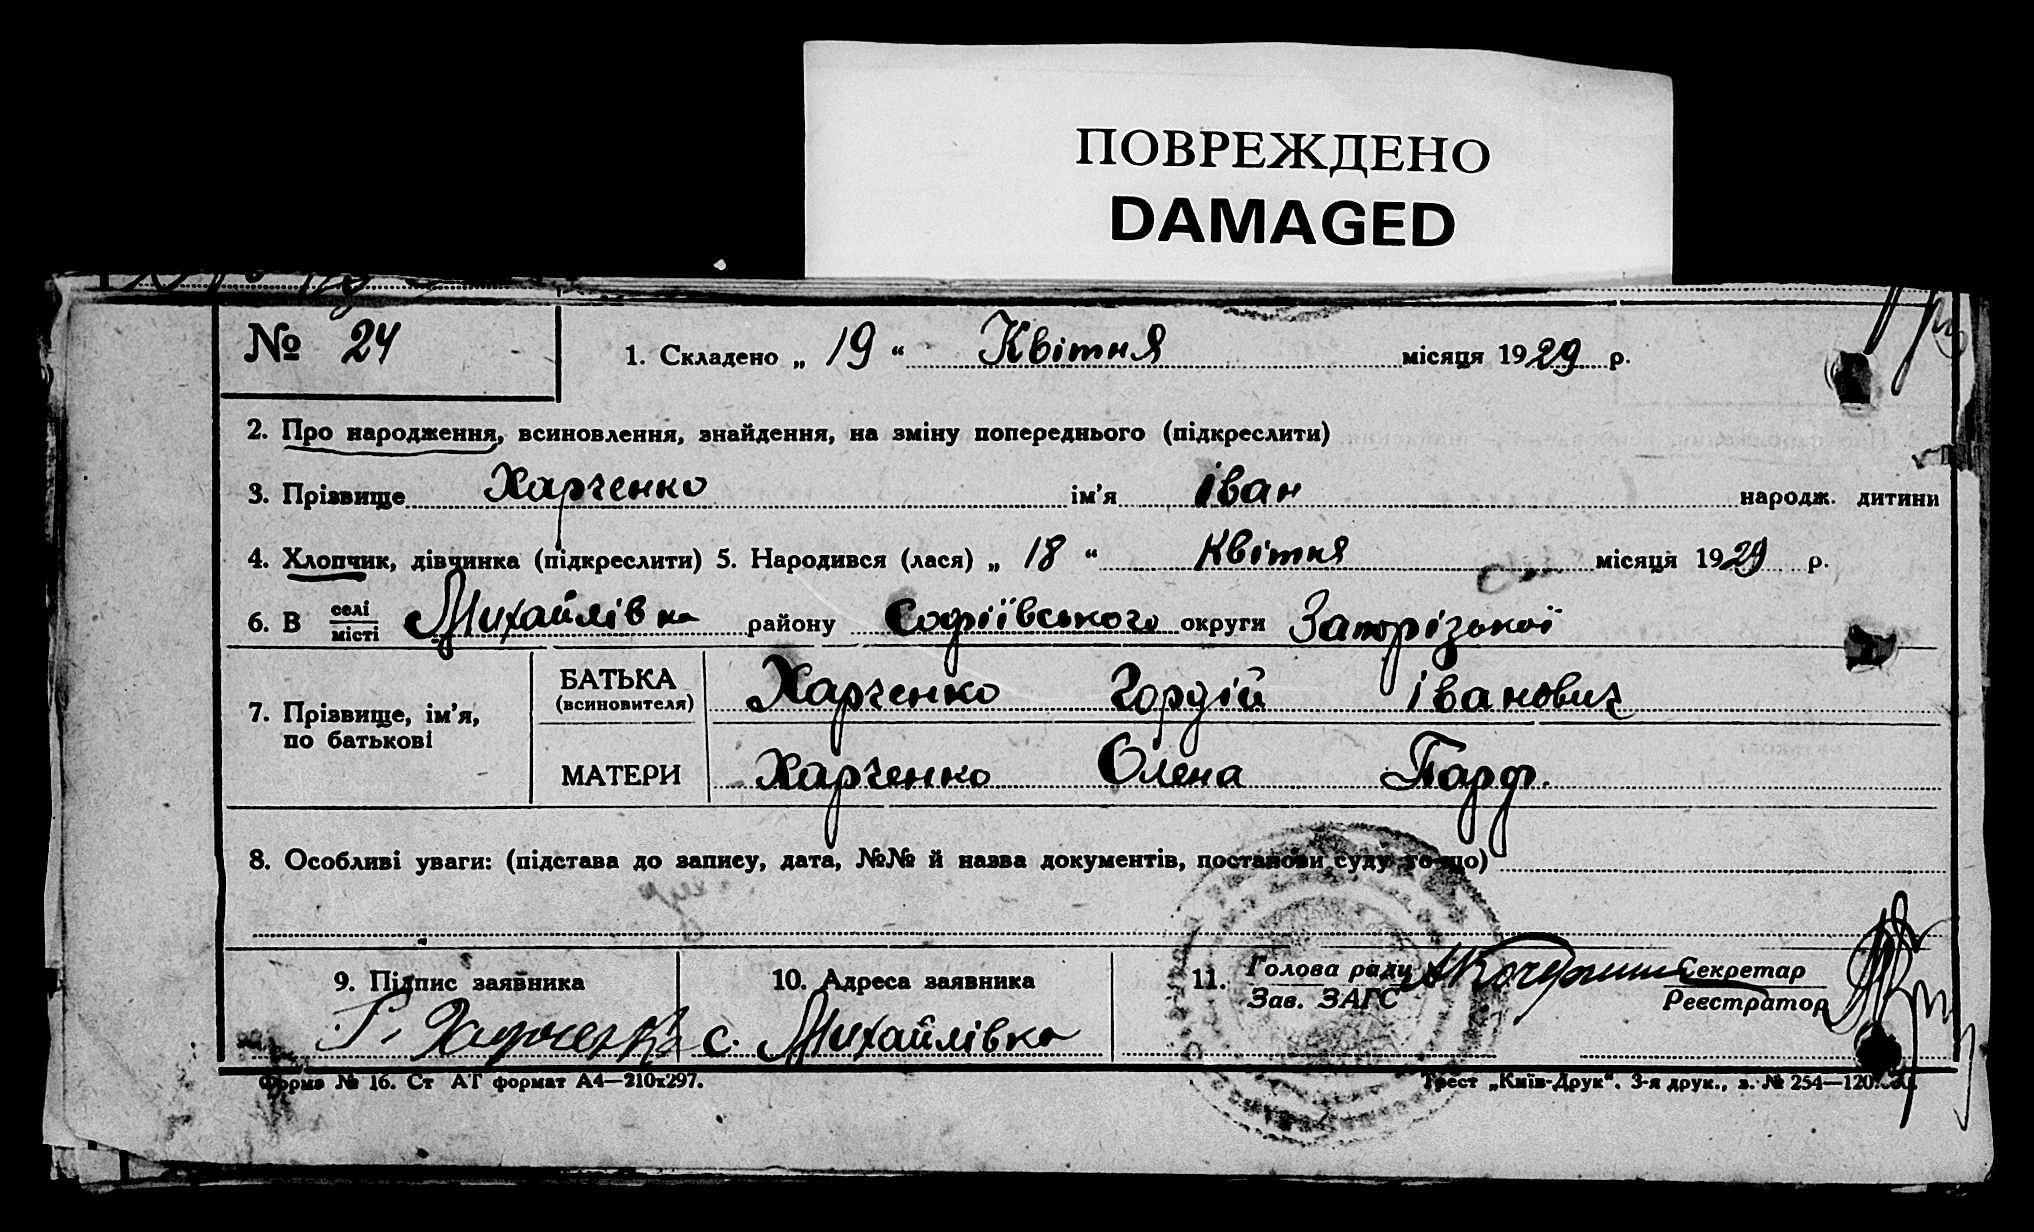 ПОВРЕЖДЕНО
DAMAGED
№ 24
1. Складено „ 19 “ Квітня місяця 1929 р.
2. Про народження, всиновлення, знайдення, на зміну попереднього (підкреслити)
3. Прізвище Харченко ім'я Іван народж. дитини
4. Хлопчик, дівчинка (підкреслити) 5. Народився (лася) „ 18 “ Квітня місяця 1929 р.
6. В селі місті Михайлівка району Софіївського округи Запорізької
7. Прізвище, ім'я, по батькові
БАТЬКА (всиновителя) Харченко Гордій Іванович
МАТЕРИ Харченко Олена Парф.
8. Особливі уваги: (підстава до запису, дата, №№ й назва документів, постанови суду то-що)
9. Підпис заявника
10. Адреса заявника
11. Голова ради Зав. ЗАГС
Секретар Реєстратор
Г. Харченко
с. Михайлівка
Форма № 16. Ст АТ формат А4—210х297.
Трест „Київ-Друк“. 3-я друк., з. № 254—120